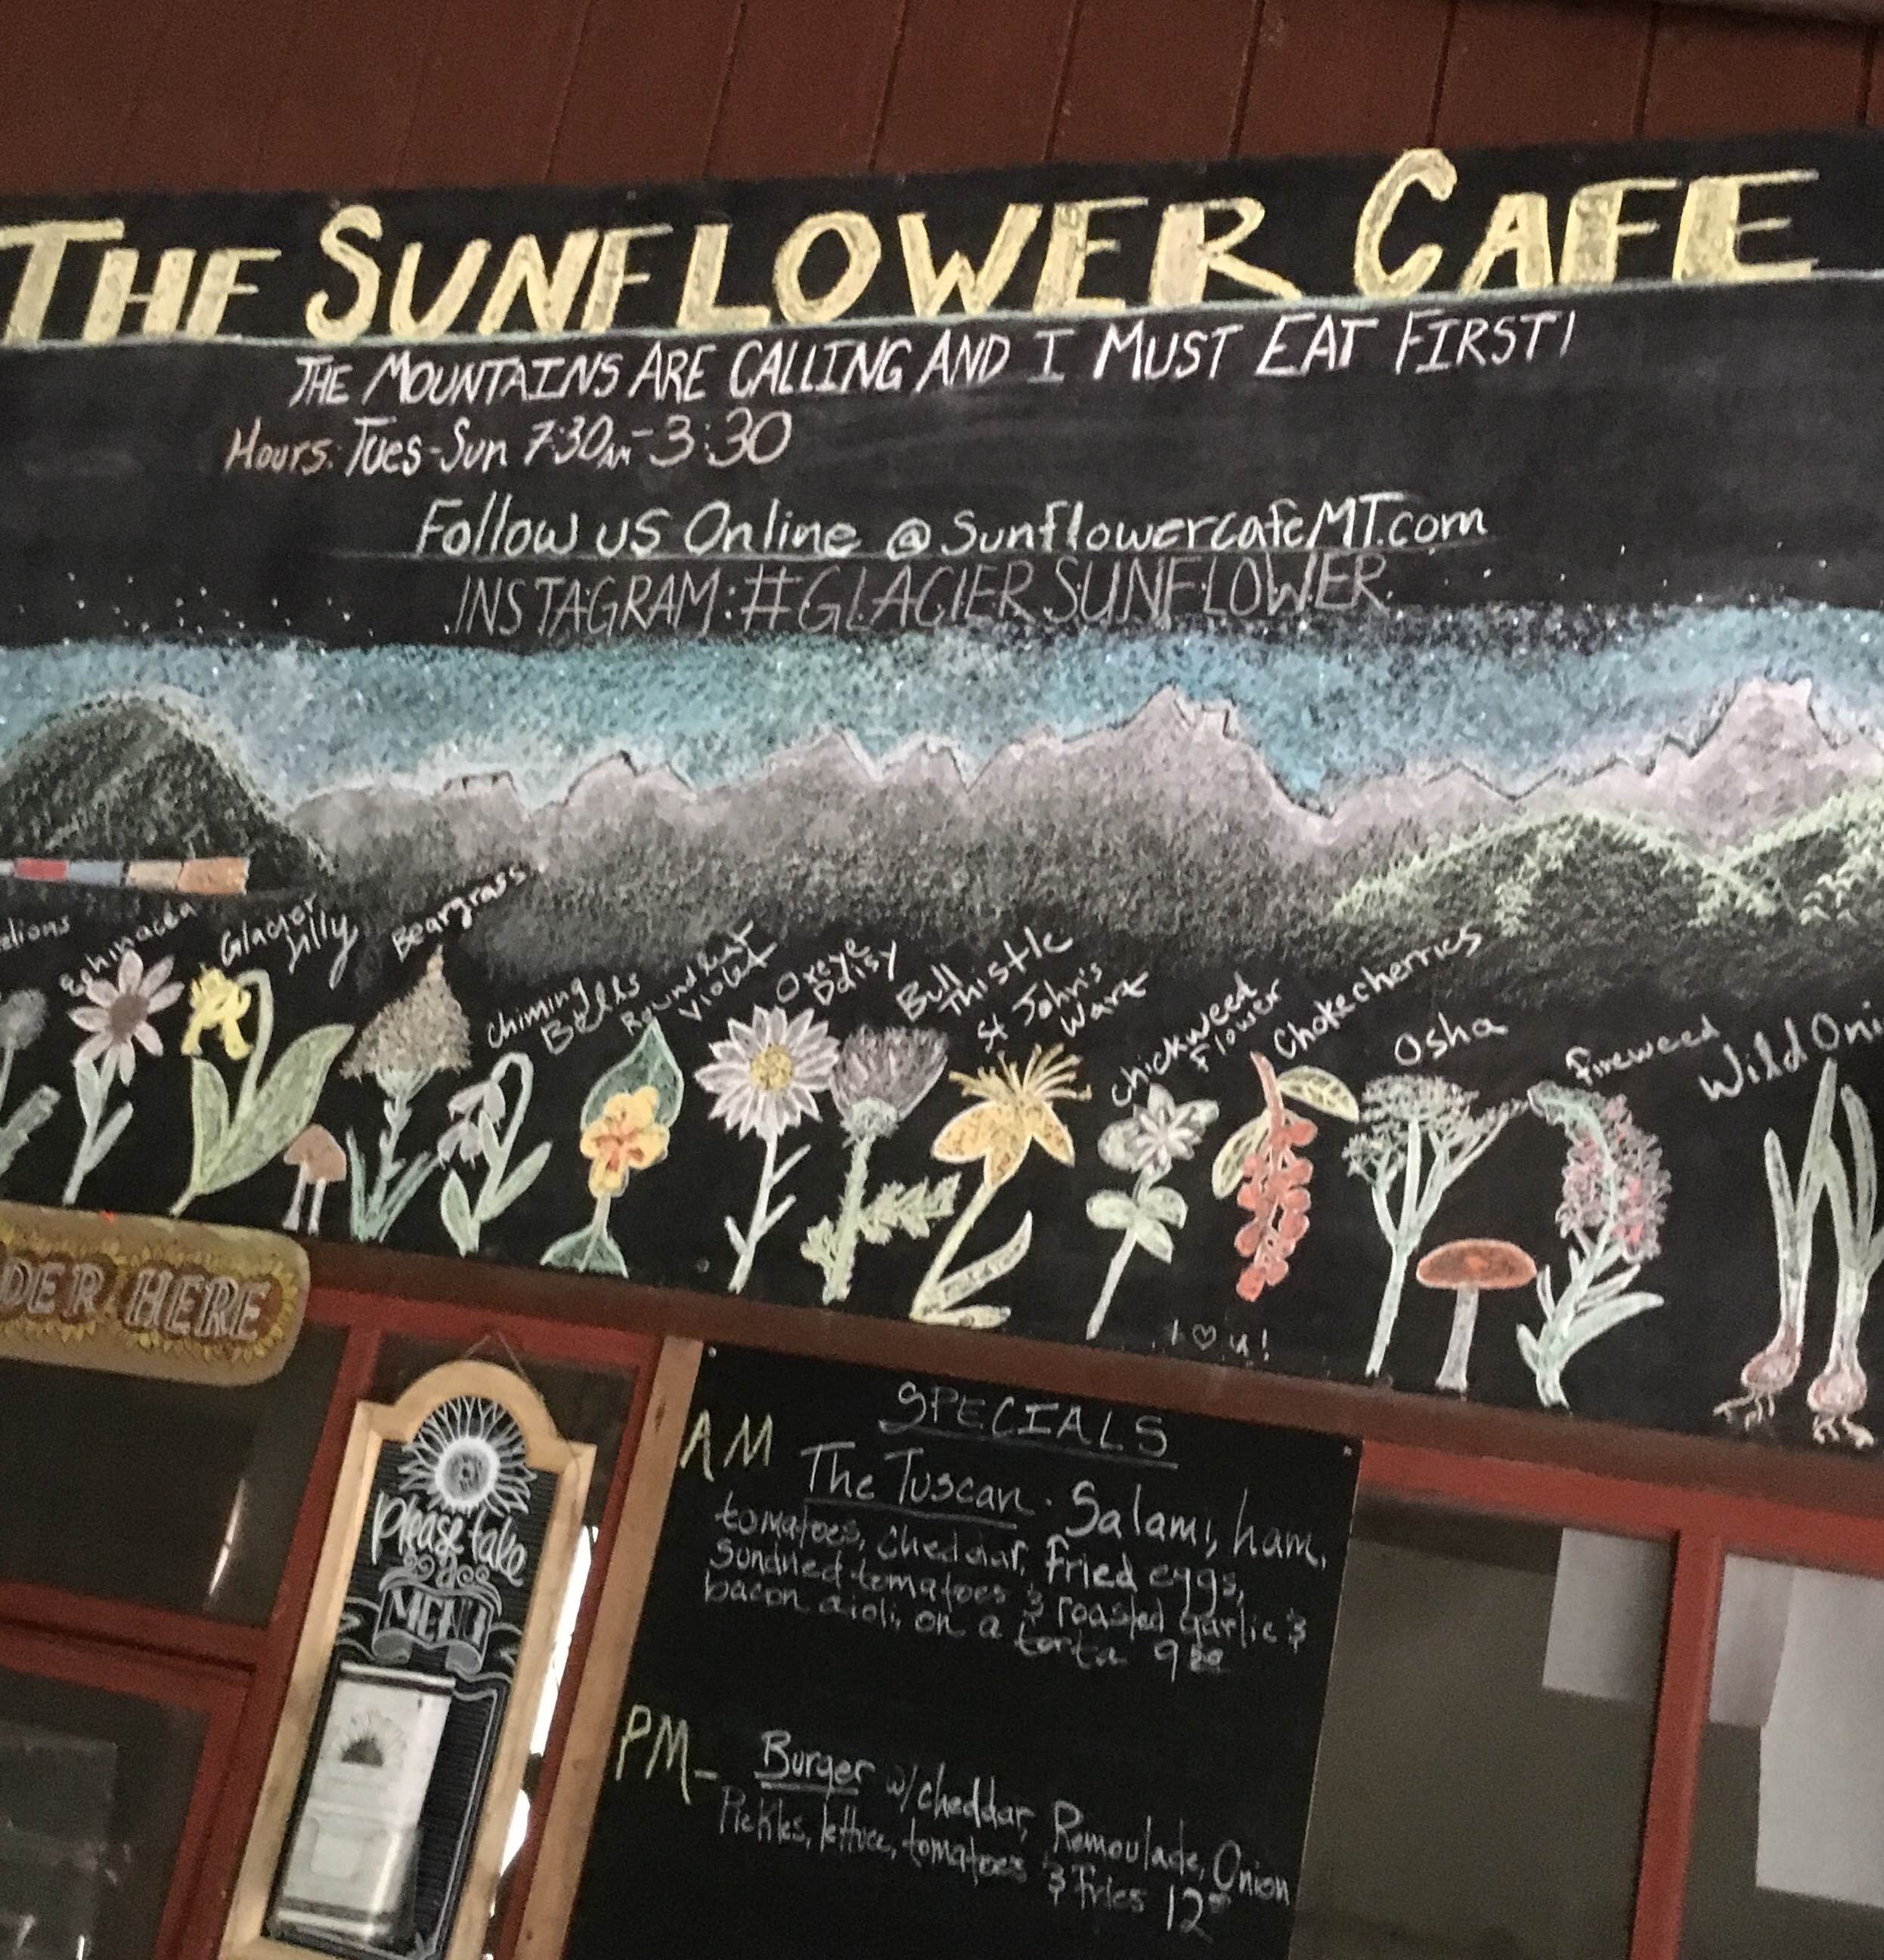 THE SUNFLOWER CAFE
THE MOUNTAINS ARE CALLING AND I MUST EAT FIRST!
Hours: Tues-Sun 7:30AM-3:30
Follow us Online @SunflowercafeMT.com
INSTAGRAM:#GLACIERSUNFLOWER
elions
Echinacea
Glacier
Lilly
Beargrass
Chiming
Bells
Roundleaf
Violet
Oxeye
Daisy
Bull
Thistle
St John's
Wart
Chickweed
Flower
Chokecherries
Osha
Fireweed
Wild Oni
I ♡ u!
DER HERE
Please take
a
MENU
SPECIALS
AM
The Tuscan. Salami, ham,
tomatoes, cheddar, fried eggs,
Sundried tomatoes & roasted garlic &
bacon aioli, on a torta 9
PM-
Burger w/cheddar, Remoulade, Onion
Pickles, lettuce, tomatoes & Fries 12